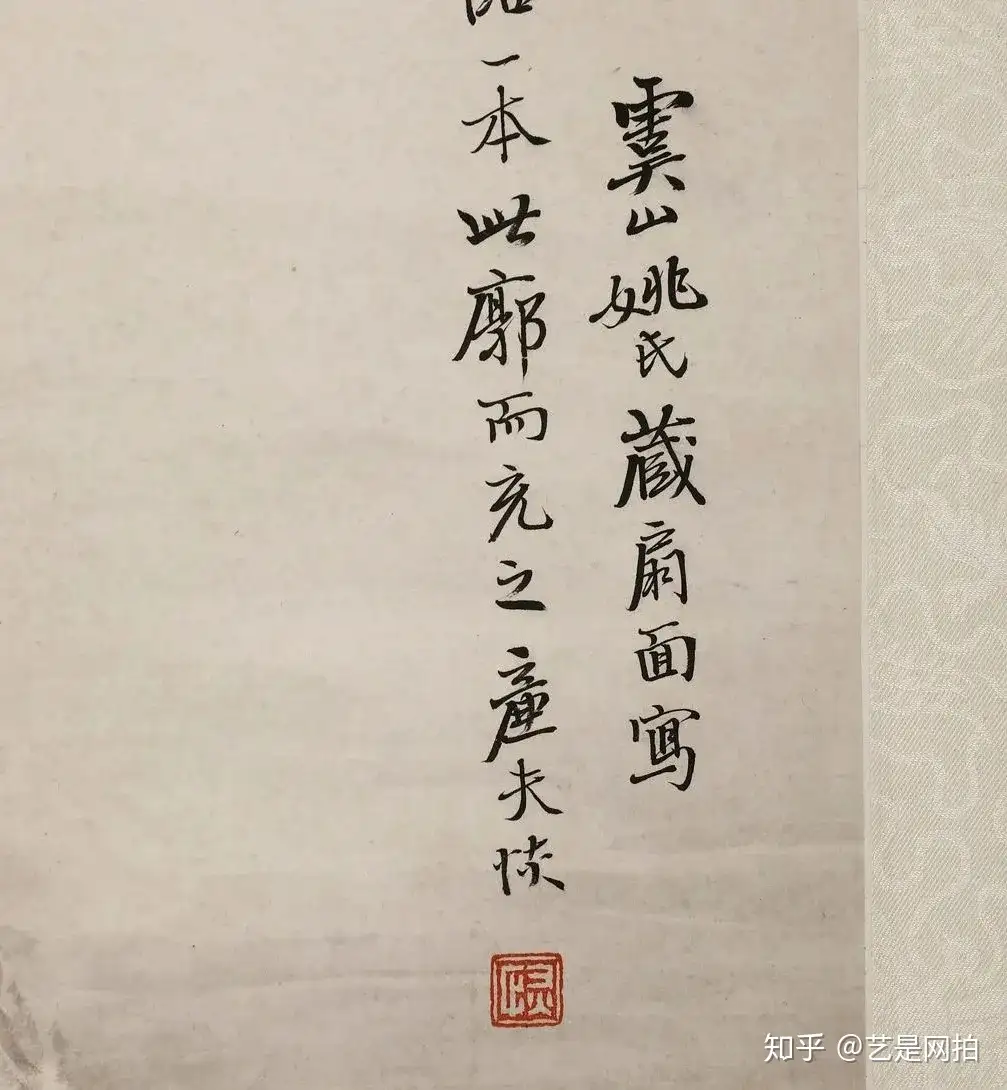 虞山姚氏藏扇面寫
一本此廓而充之廉夫恢
恢
知乎 @艺是网拍